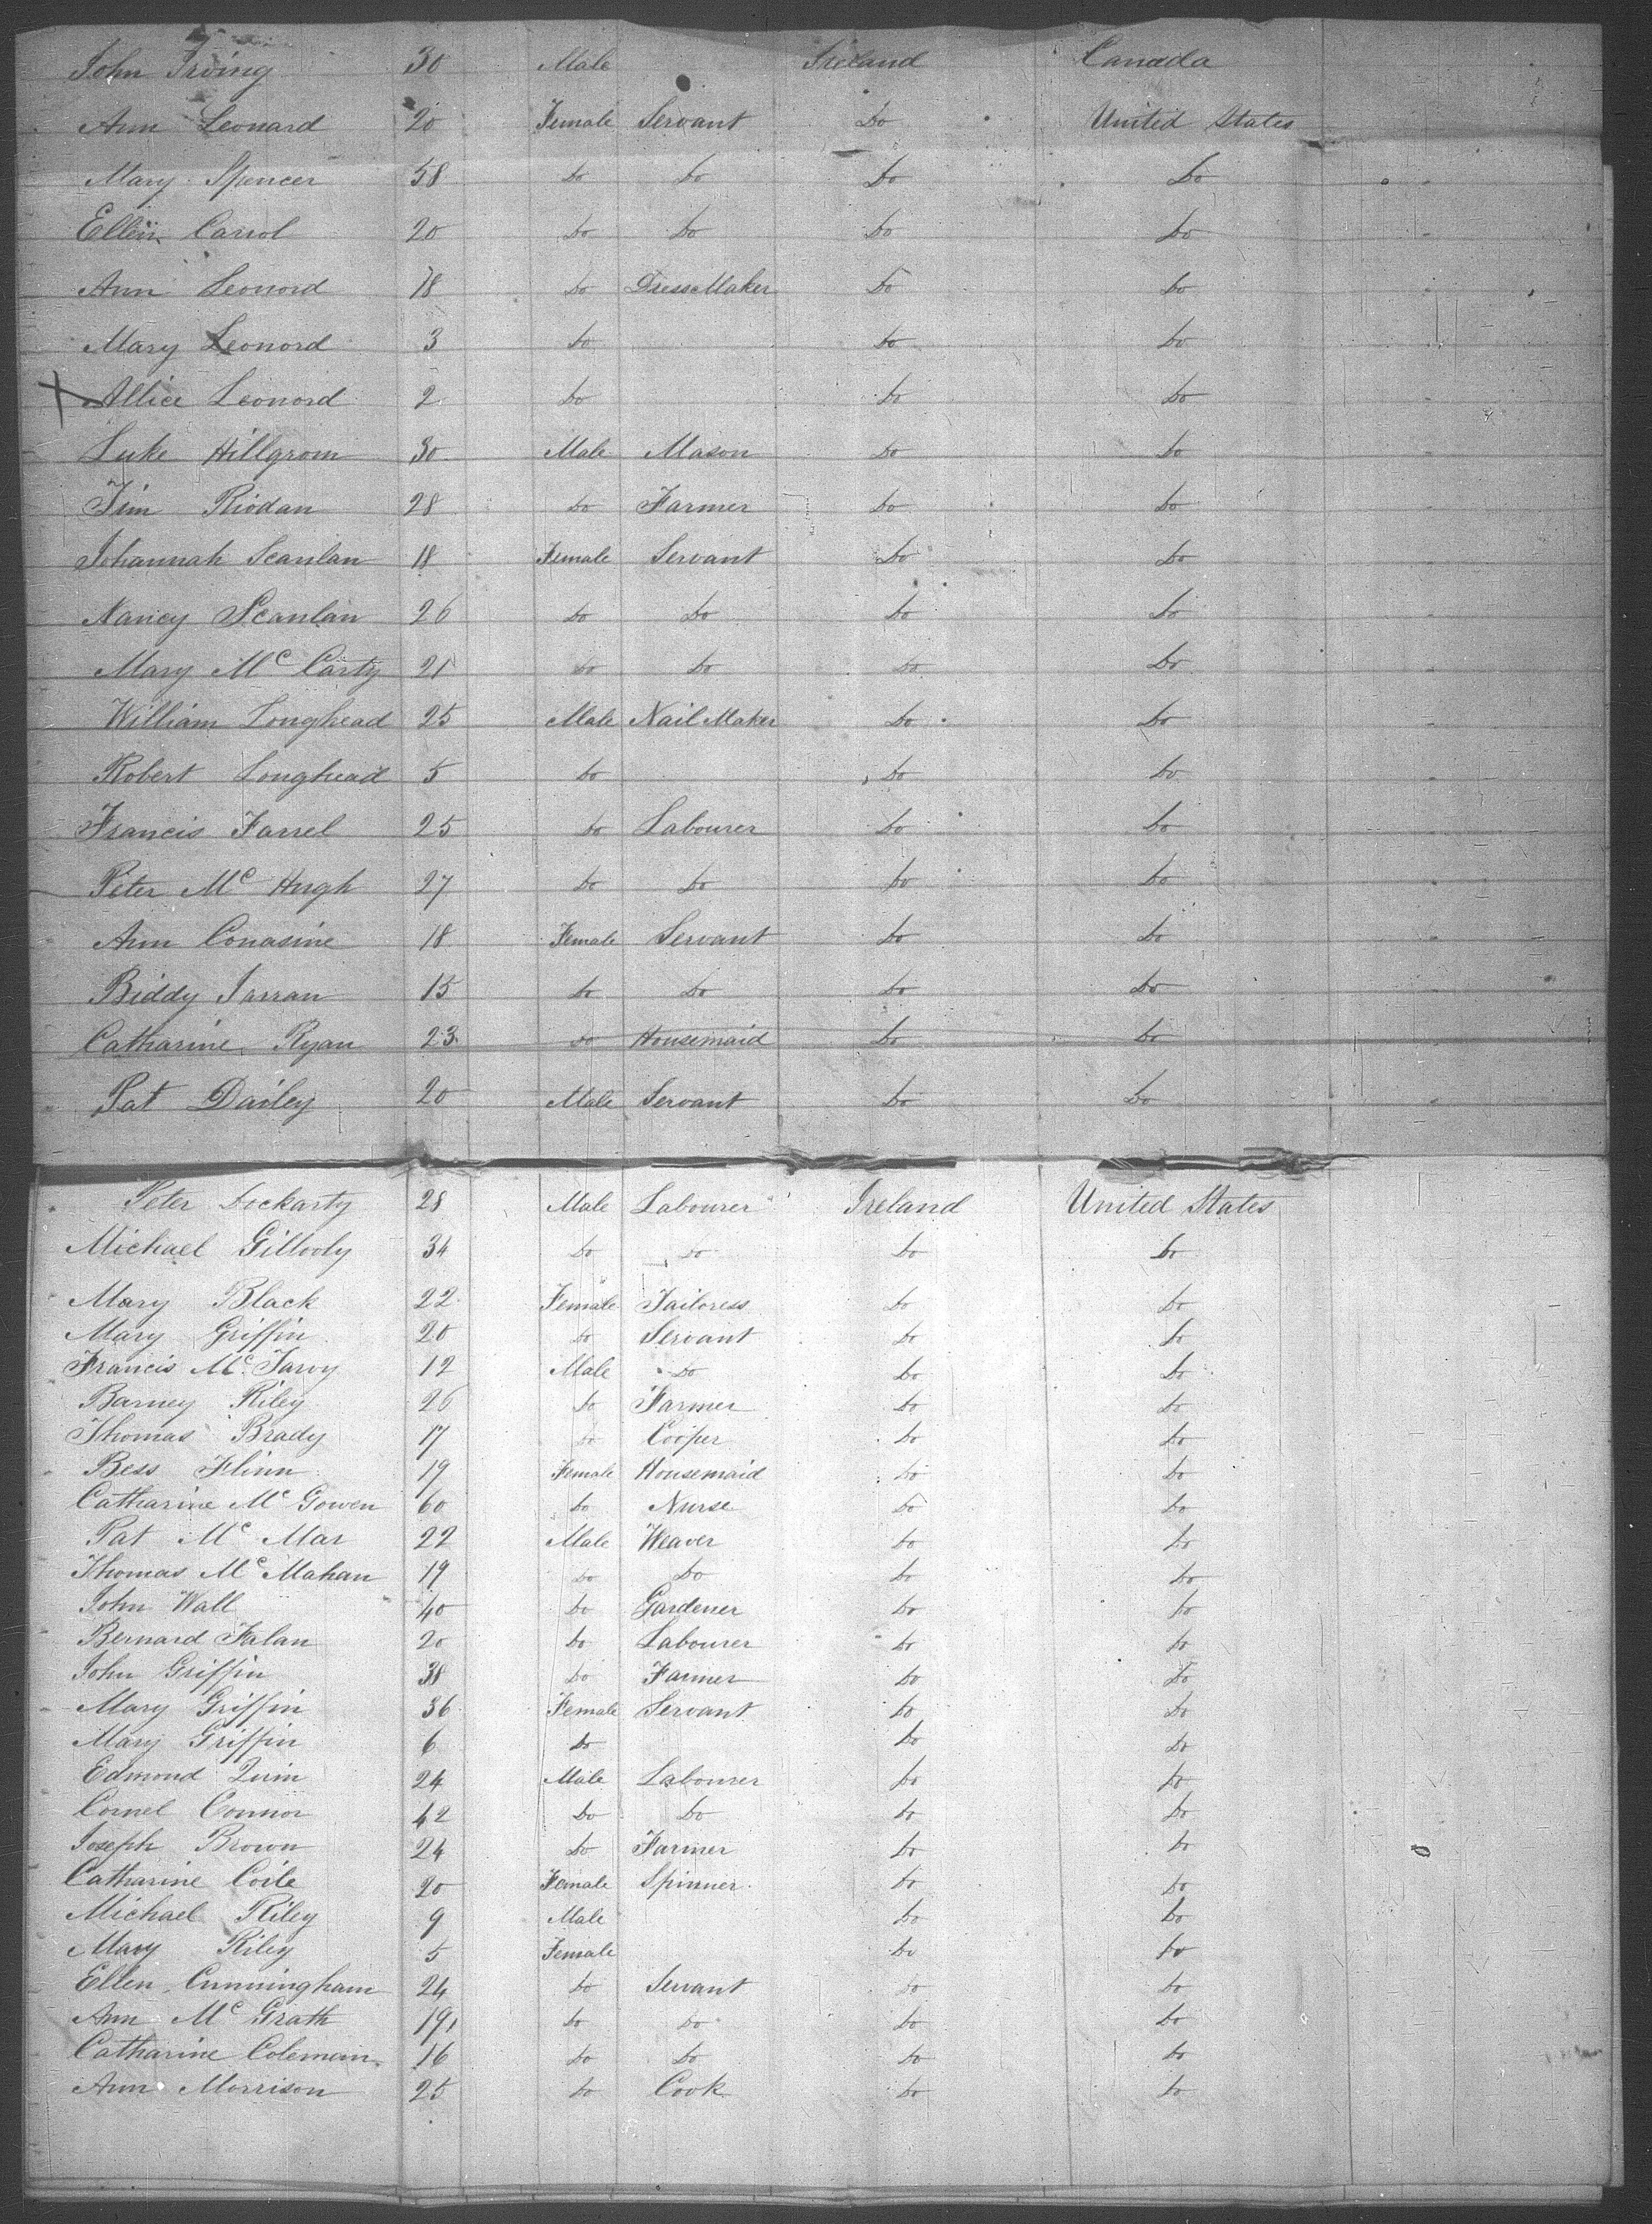 John Irving 30 Male Ireland Canada
Ann Leonard 20 Female Servant Do United States
Mary Spencer 58 Do Do Do Do
Ellen Carrol 20 Do Do Do Do
Ann Leonord 18 Do Dress Maker Do Do
Mary Leonord 3 Do Do Do
Allice Leonord 2 Do Do Do
Luke Hillgrom 30 Male Mason Do Do
Jim Riodan 28 Do Farmer Do Do
Johannah Scanlan 18 Female Servant Do Do
Nancy Scanlan 26 Do Do Do Do
Mary Mc Carty 21 Do Do Do Do
William Longhead 25 Male Nail Maker Do Do
Robert Longhead 5 Do Do Do
Francis Farrel 25 Do Labourer Do Do
Peter Mc Hugh 27 Do Do Do Do
Ann Conasine 18 Female Servant Do Do
Biddy Farran 15 Do Do Do Do
Catharine Ryan 23 Do Housemaid Do Do
Pat Dailey 20 Male Servant Do Do
Peter Dockarty 28 Male Labourer Ireland United States
Michael Gillooly 34 Do Do Do Do
Mary Black 22 Female Tailoress Do Do
Mary Griffin 20 Do Servant Do Do
Francis Mc Tarvy 12 Male Do Do Do
Barney Riley 26 Do Farmer Do Do
Thomas Brady 17 Do Cooper Do Do
Bess Flinn 19 Female Housemaid Do Do
Catharine Mc Gowen 60 Do Nurse Do Do
Pat Mc Mar 22 Male Weaver Do Do
Thomas Mc Mahan 19 Do Do Do Do
John Wall 40 Do Gardener Do Do
Bernard Falan 20 Do Labourer Do Do
John Griffin 38 Do Farmer Do Do
Mary Griffin 36 Female Servant Do Do
Mary Griffin 6 Do Do Do
Edmond Quin 24 Male Labourer Do Do
Cornel Connor 42 Do Do Do Do
Joseph Brown 24 Do Farmer Do Do
Catharine Coile 20 Female Spinner Do Do
Michael Riley 9 Male Do Do
Mary Riley 5 Female Do Do
Ellen Cunningham 24 Do Servant Do Do
Ann Mc Grath 19 Do Do Do Do
Catharine Coleman 16 Do Do Do Do
Ann Morrison 25 Do Cook Do Do